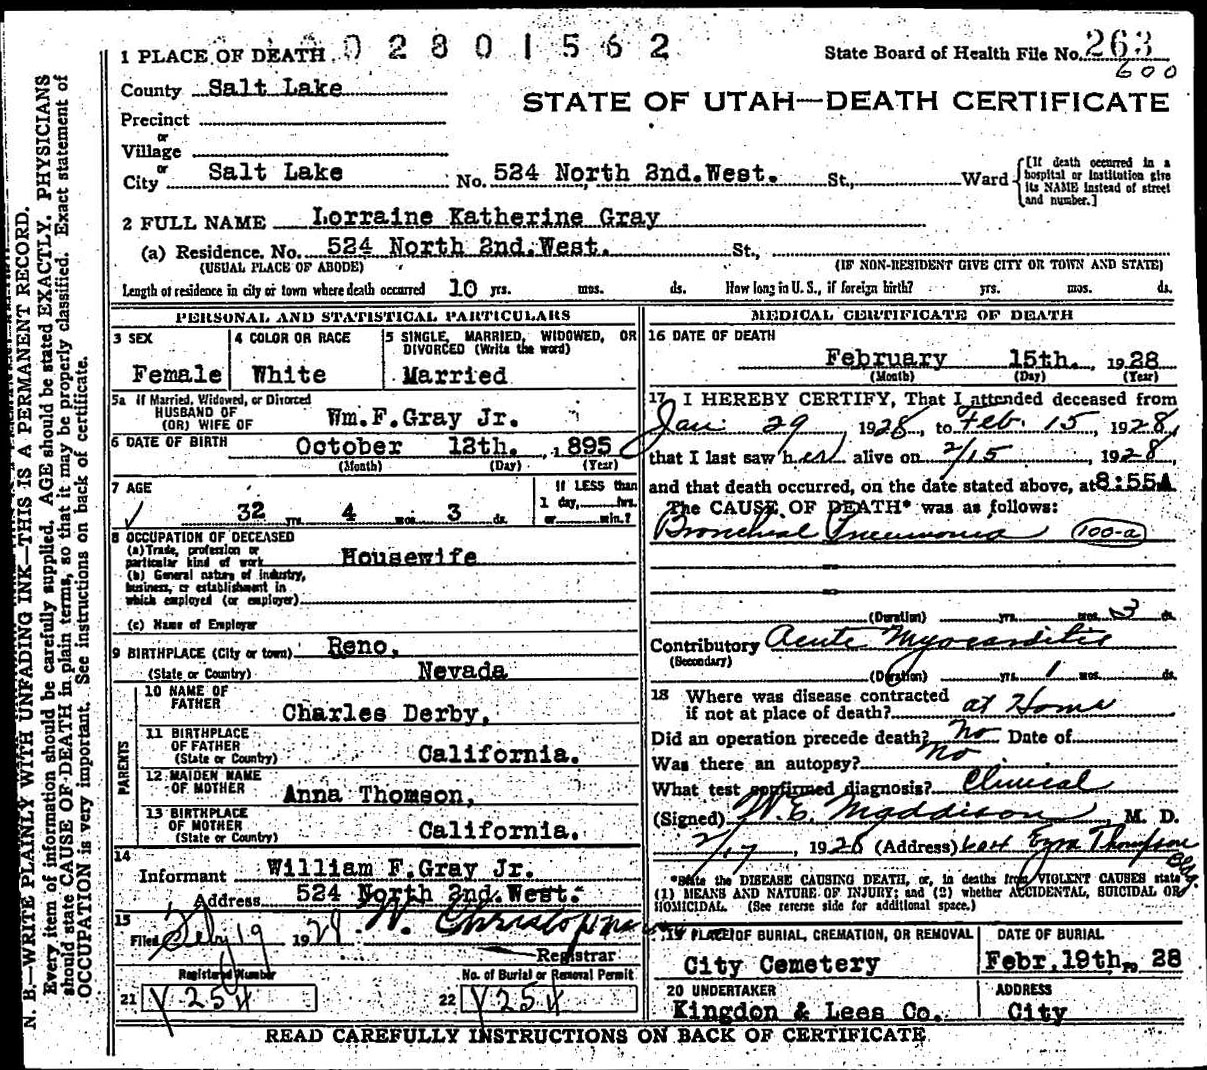 1 PLACE OF DEATH 02801562 State Board of Health File No. 263
600
County Salt Lake
STATE OF UTAH—DEATH CERTIFICATE
Precinct
or
Village
or
City Salt Lake No. 524 North 2nd. West. St., Ward [If death occurred in a hospital or institution give its NAME instead of street and number.]
2 FULL NAME Lorraine Katherine Gray
(a) Residence. No. 524 North 2nd. West. St.,
(USUAL PLACE OF ABODE) (IF NON-RESIDENT GIVE CITY OR TOWN AND STATE)
Length of residence in city or town where death occurred 10 yrs. mos. ds. How long in U. S., if foreign birth? yrs. mos. ds.
PERSONAL AND STATISTICAL PARTICULARS
3 SEX
Female
4 COLOR OR RACE
White
5 SINGLE, MARRIED, WIDOWED, OR
DIVORCED (Write the word)
Married
5a If Married, Widowed, or Divorced
HUSBAND OF
(OR) WIFE OF Wm. F. Gray Jr.
6 DATE OF BIRTH October 12th. , 1895
(Month) (Day) (Year)
7 AGE
32 yrs. 4 mos. 3 ds.
If LESS than
1 day, hrs.
or min.?
8 OCCUPATION OF DECEASED
(a) Trade, profession or
particular kind of work Housewife
(b) General nature of industry,
business, or establishment in
which employed (or employer)
(c) Name of Employer
9 BIRTHPLACE (City or town) Reno,
(State or Country) Nevada
PARENTS
10 NAME OF
FATHER Charles Derby,
11 BIRTHPLACE
OF FATHER
(State or Country) California.
12 MAIDEN NAME
OF MOTHER Anna Thomson,
13 BIRTHPLACE
OF MOTHER
(State or Country) California.
14
Informant William F. Gray Jr.
Address 524 North 2nd. West.
15
Filed Feby 19 1928
Registrar
Registered Number
21 Y 254
No. of Burial or Removal Permit
22 Y 254
MEDICAL CERTIFICATE OF DEATH
16 DATE OF DEATH
February 15th. 1928
(Month) (Day) (Year)
17 I HEREBY CERTIFY, That I attended deceased from
Jan. 29 , 1928, to Feb. 15 , 1928,
that I last saw her alive on 2/15 , 1928,
and that death occurred, on the date stated above, at 8:55A
The CAUSE OF DEATH* was as follows:
Bronchial Pneumonia 100-a
(Duration) yrs. mos. 3 ds.
Contributory Acute Myocarditis
(Secondary)
(Duration) yrs. 1 mos. ds.
18 Where was disease contracted
if not at place of death? at Home
Did an operation precede death? No Date of
Was there an autopsy? No
What test confirmed diagnosis? Clinical
(Signed) W. E. Maddison , M. D.
2/17 , 1928 (Address) Ezra Thompson
Bldg.
*State the DISEASE CAUSING DEATH, or, in deaths from VIOLENT CAUSES state
(1) MEANS AND NATURE OF INJURY; and (2) whether ACCIDENTAL, SUICIDAL OR
HOMICIDAL. (See reverse side for additional space.)
19 PLACE OF BURIAL, CREMATION, OR REMOVAL
City Cemetery
DATE OF BURIAL
Febr. 19th. 28
20 UNDERTAKER
Kingdon & Lees Co.
ADDRESS
City
READ CAREFULLY INSTRUCTIONS ON BACK OF CERTIFICATE
N. B.—WRITE PLAINLY WITH UNFADING INK—THIS IS A PERMANENT RECORD.
Every item of information should be carefully supplied. AGE should be stated EXACTLY. PHYSICIANS
should state CAUSE OF DEATH in plain terms, so that it may be properly classified. Exact statement of
OCCUPATION is very important. See instructions on back of certificate.